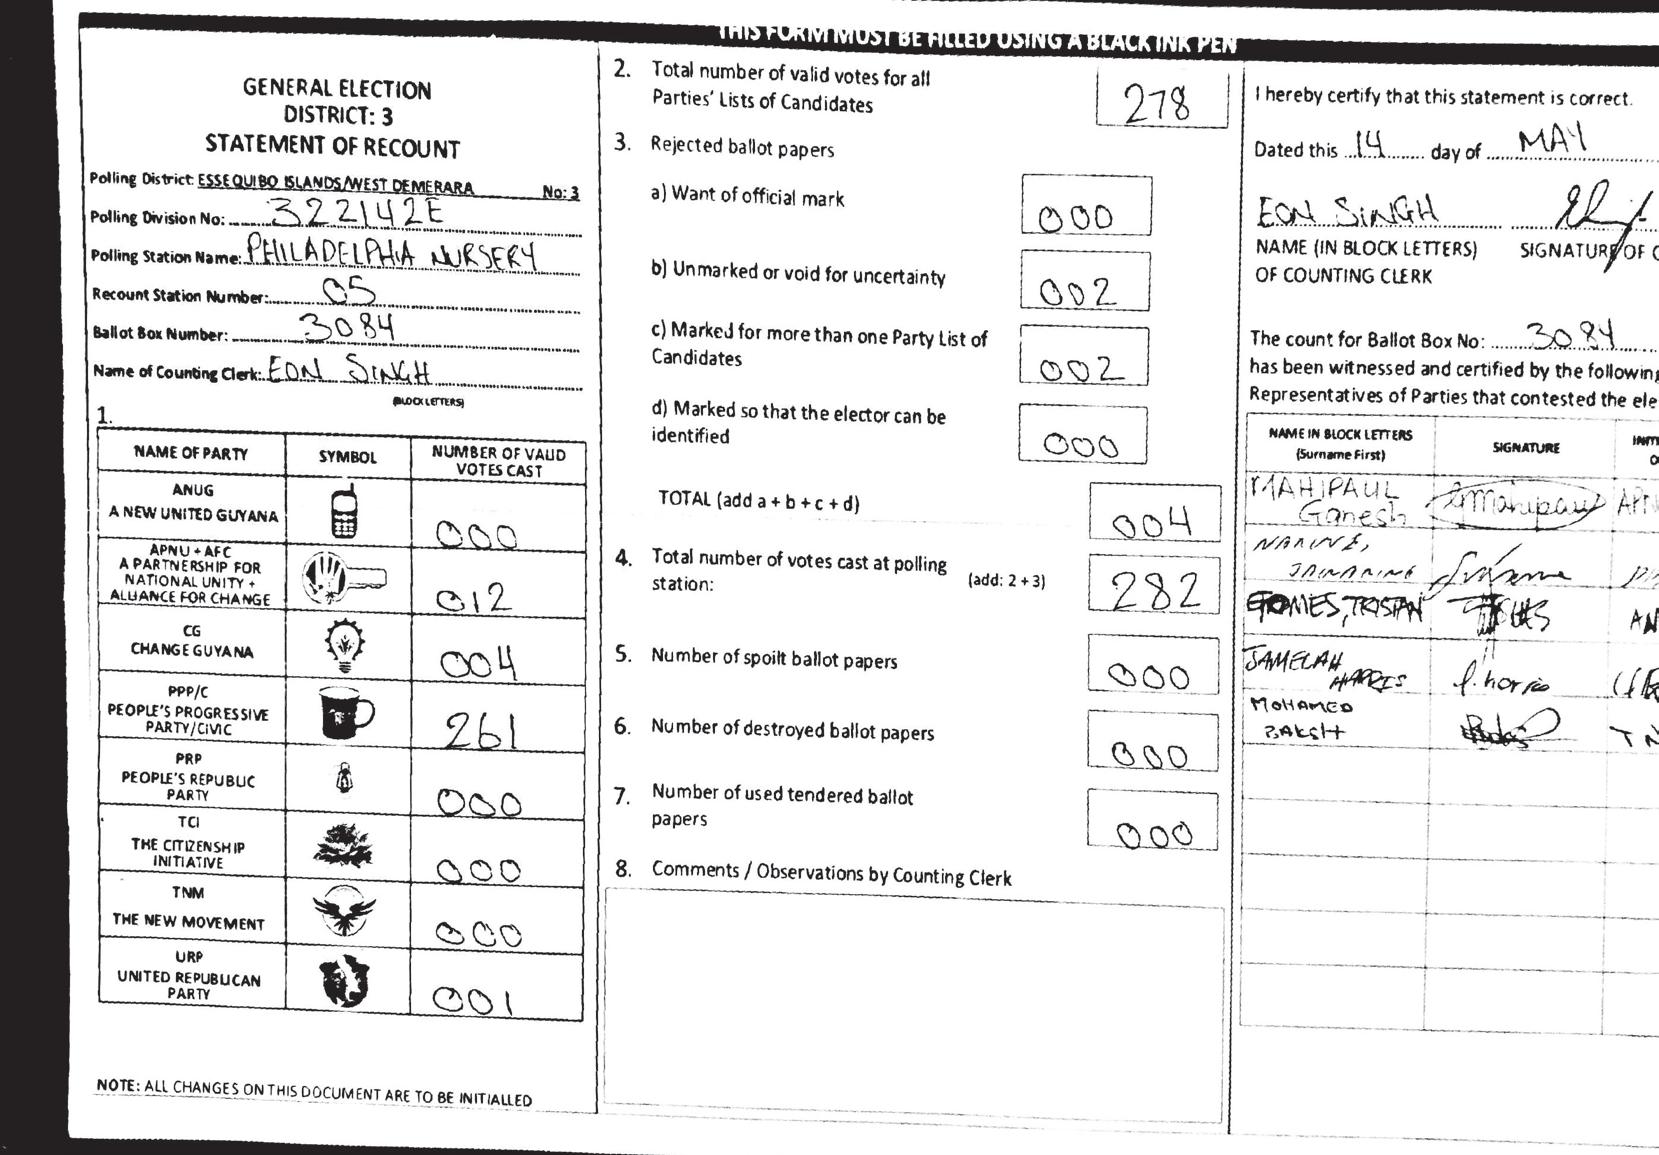 THIS FORM MUST BE FILLED USING A BLACK INK PEN
GENERAL ELECTION
DISTRICT: 3
STATEMENT OF RECOUNT
Polling District: ESSEQUIBO ISLANDS/WEST DEMERARA No: 3
Polling Division No: 322142E
Polling Station Name: PHILADELPHIA NURSERY
Recount Station Number: 05
Ballot Box Number: 3084
Name of Counting Clerk: EON SINGH
(BLOCK LETTERS)
1.
NAME OF PARTY SYMBOL NUMBER OF VALID VOTES CAST
ANUG
A NEW UNITED GUYANA 000
APNU + AFC
A PARTNERSHIP FOR
NATIONAL UNITY +
ALLIANCE FOR CHANGE 012
CG
CHANGE GUYANA 004
PPP/C
PEOPLE'S PROGRESSIVE
PARTY/CIVIC 261
PRP
PEOPLE'S REPUBLIC
PARTY 000
TCI
THE CITIZENSHIP
INITIATIVE 000
TNM
THE NEW MOVEMENT 000
URP
UNITED REPUBLICAN
PARTY 001
NOTE: ALL CHANGES ON THIS DOCUMENT ARE TO BE INITIALLED
2. Total number of valid votes for all
Parties' Lists of Candidates 278
3. Rejected ballot papers
a) Want of official mark 000
b) Unmarked or void for uncertainty 002
c) Marked for more than one Party List of
Candidates 002
d) Marked so that the elector can be
identified 000
TOTAL (add a + b + c + d) 004
4. Total number of votes cast at polling
station: (add: 2 + 3) 282
5. Number of spoilt ballot papers 000
6. Number of destroyed ballot papers 000
7. Number of used tendered ballot
papers 000
8. Comments / Observations by Counting Clerk
I hereby certify that this statement is correct.
Dated this 14 day of MAY
EON SINGH
NAME (IN BLOCK LETTERS) SIGNATURE OF
OF COUNTING CLERK
The count for Ballot Box No: 3084
has been witnessed and certified by the following
Representatives of Parties that contested the
NAME IN BLOCK LETTERS SIGNATURE
(Surname First)
MAHIPAUL
Ganesh GMahipaul
NARINE,
JAINARINE
GOMES, TRISTAN
JAMELAH
HARRIS J. harris
MOHAMED
BAKSH